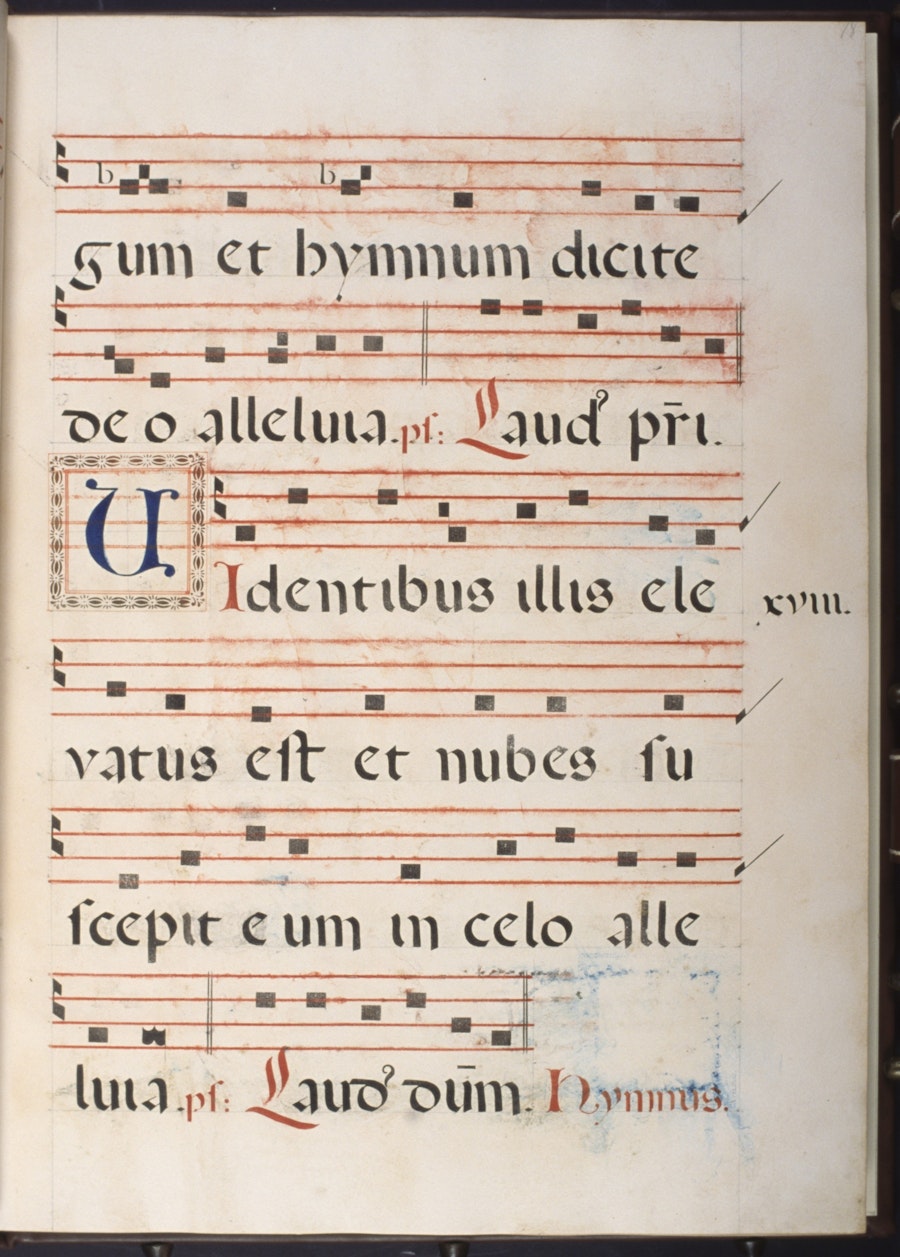 gum et hymnum dicite
de o alleluia. ps: Laud' pr̄i.
VIdentibus illis ele
xviii.
vatus est et nubes su
scepit eum in celo alle
luia. ps: Laud' dūm. Hymnus.